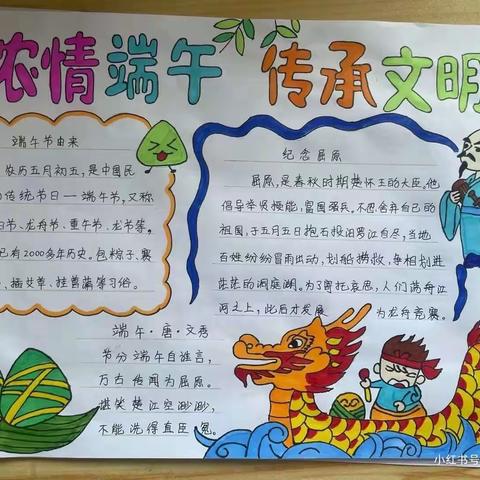 浓情端午 传承文明
端午节由来
农历五月初五，是中国民
的传统节日——端午节，又称
日节、龙舟节、重午节、龙节等。
已有2000多年历史。包粽子、赛
、插艾草、挂菖蒲等习俗。
纪念屈原
屈原，是春秋时期楚怀王的大臣。他
倡导举贤授能，富国强兵。不忍舍弃自己的
祖国，于五月五日抱石投汨罗江自尽，当地
百姓纷纷冒雨出动，划船捞救，争相划进
茫茫的洞庭湖。为了寄托哀思，人们荡舟江
河之上，此后才发展为龙舟竞赛。
端午·唐·文秀
节分端午自谁言，
万古传闻为屈原。
堪笑楚江空渺渺，
不能洗得直臣冤。
小红书号